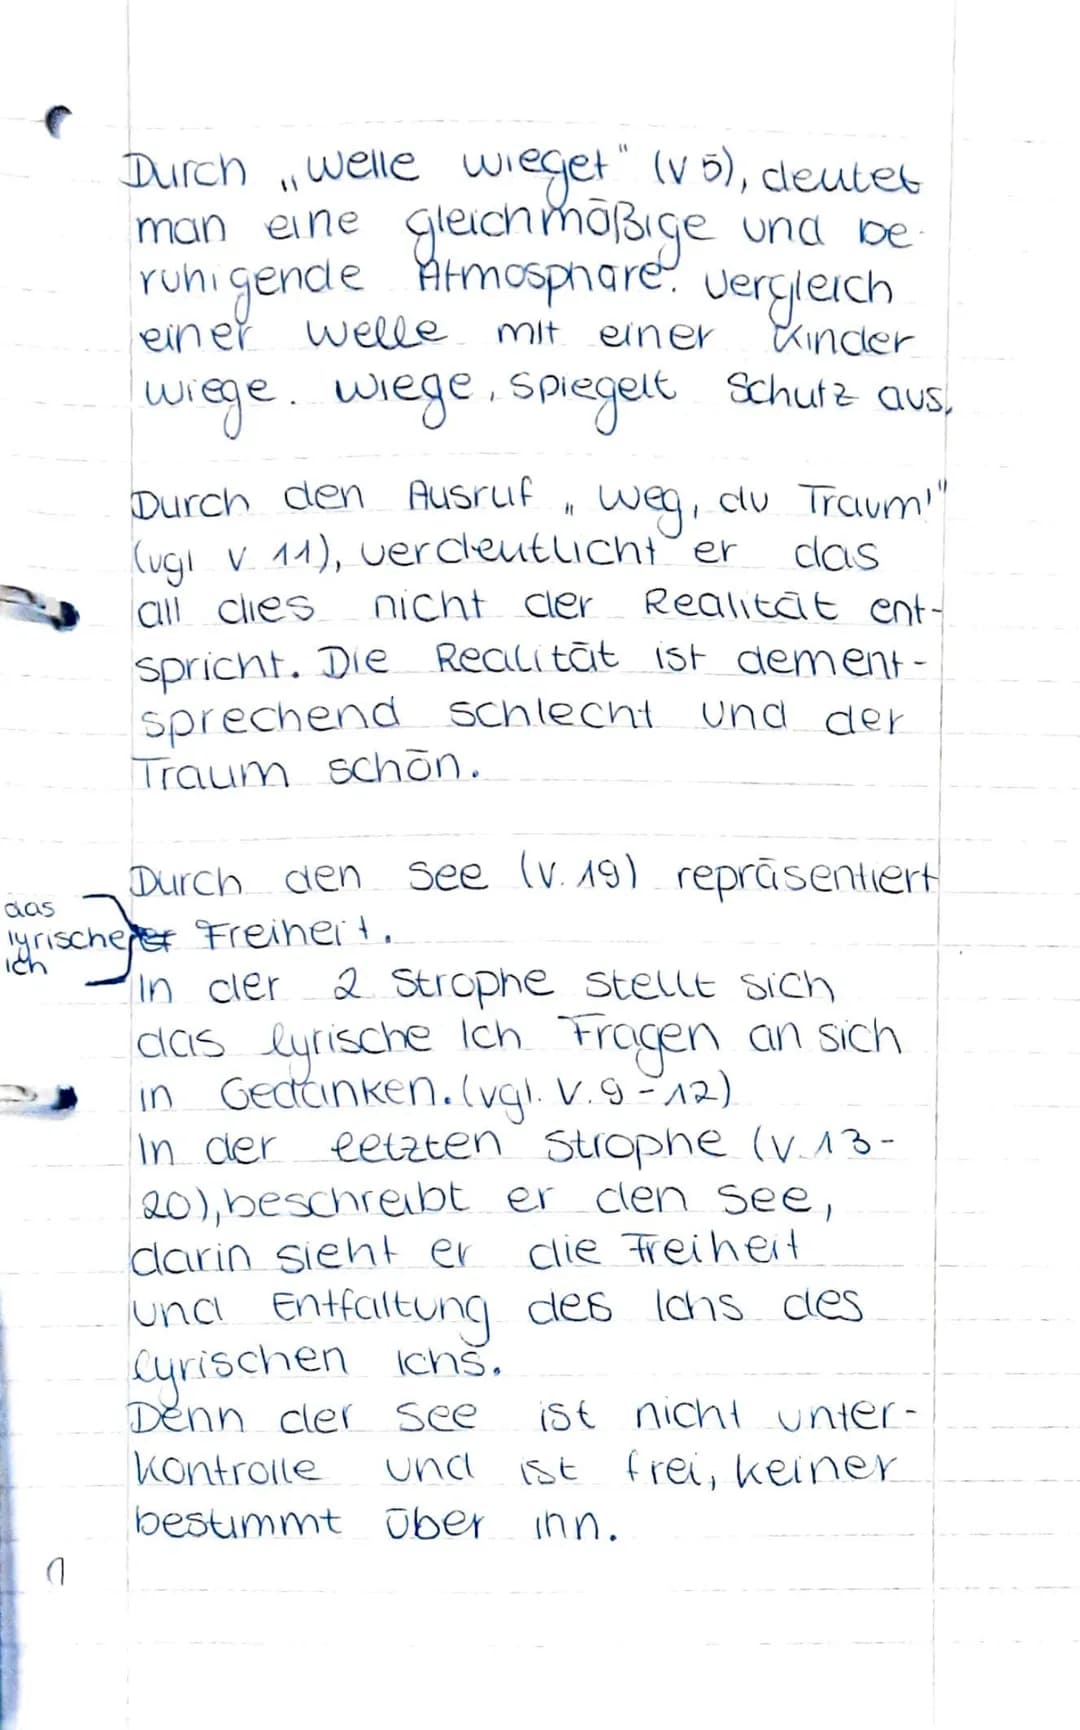 Durch „welle wieget" (V 5), deutet
man eine gleichmäßige und be-
ruhigende Atmosphäre. Vergleich
einer welle mit einer Kinder
wiege. wiege, spiegelt Schutz aus.
Durch den Ausruf „weg, du Traum!"
(vgl V. 11), verdeutlicht er das
all dies nicht der Realität ent-
spricht. Die Realität ist dement-
sprechend schlecht und der
Traum schön.
Durch den See (V. 19) repräsentiert
das lyrische Ich er Freiheit.
In der 2 Strophe stellt sich
das lyrische Ich Fragen an sich
in Gedanken. (vgl. V. 9-12)
In der letzten Strophe (V. 13-
20), beschreibt er den See,
darin sieht er die Freiheit
und Entfaltung des Ichs des
lyrischen Ichs.
Denn der See ist nicht unter-
kontrolle und ist frei, keiner
bestimmt über ihn.